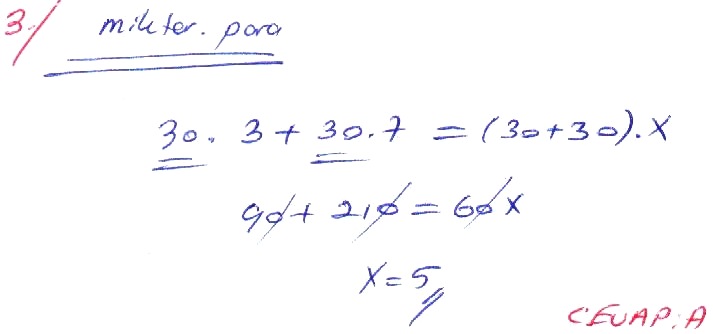 3-/ mikter. para
30. 3 + 30.7 = (30+30).X
90 + 210 = 60x
X = 5
CEVAP: A